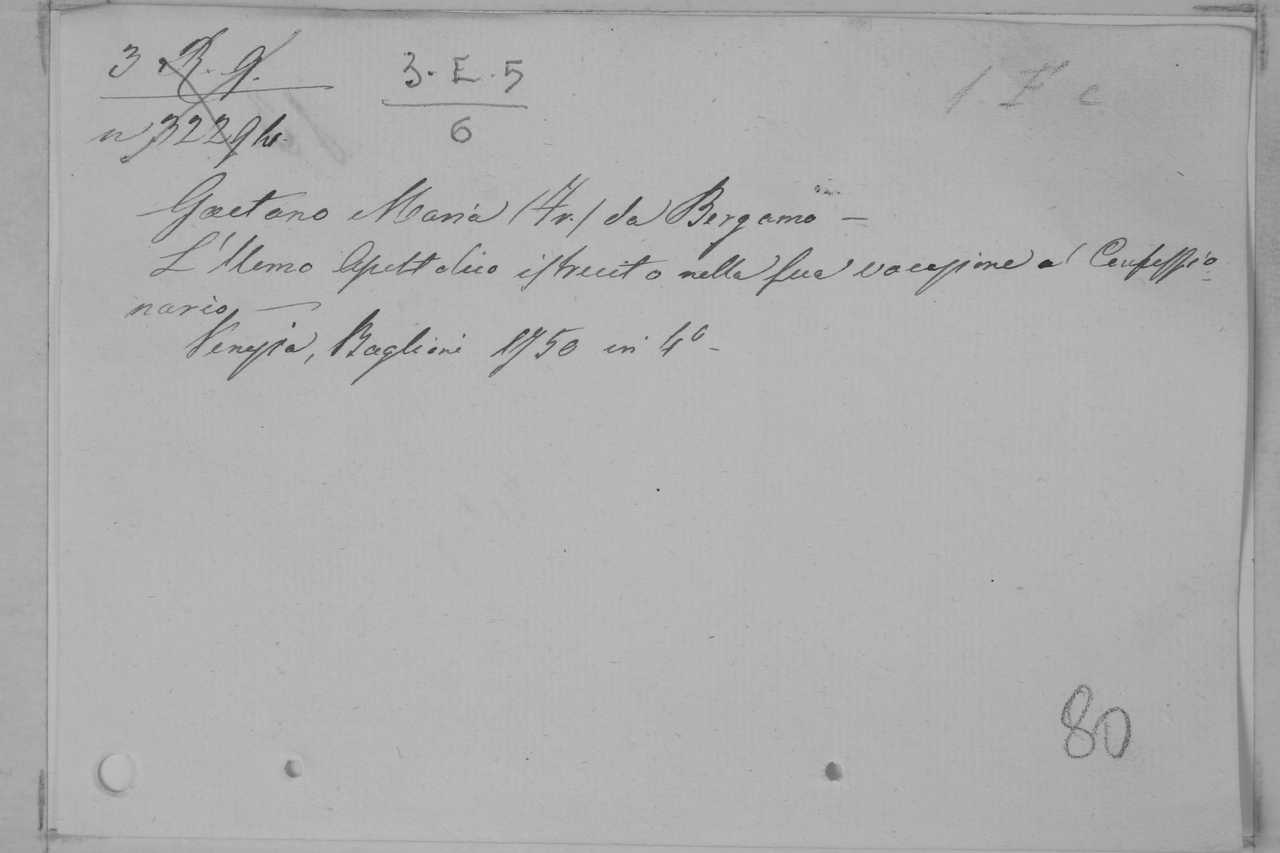 3 R. 9. 3. E. 5
n 3229 6
1. F c
Gaetano Maria (Fr.) da Bergamo —
L'Uomo Apostolico istruito nella sua vocazione al Confessio-
nario —
Venezia, Baglioni 1750 in 4° -
80